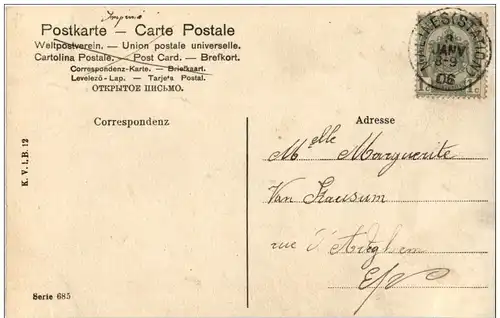 Imprimé
Postkarte — Carte Postale
Weltpostverein. — Union postale universelle.
Cartolina Postale. — Post Card. — Brefkort.
Correspondenz-Karte. — Briefkaart.
Levelező-Lap. — Tarjeta Postal.
ОТКРЫТОЕ ПИСЬМО.
(STATION)
8
JANV
8-9
06
Correspondenz
Adresse
K. V. i. B. 12
Melle Marguerite
Van
rue
E/V
Serie 685